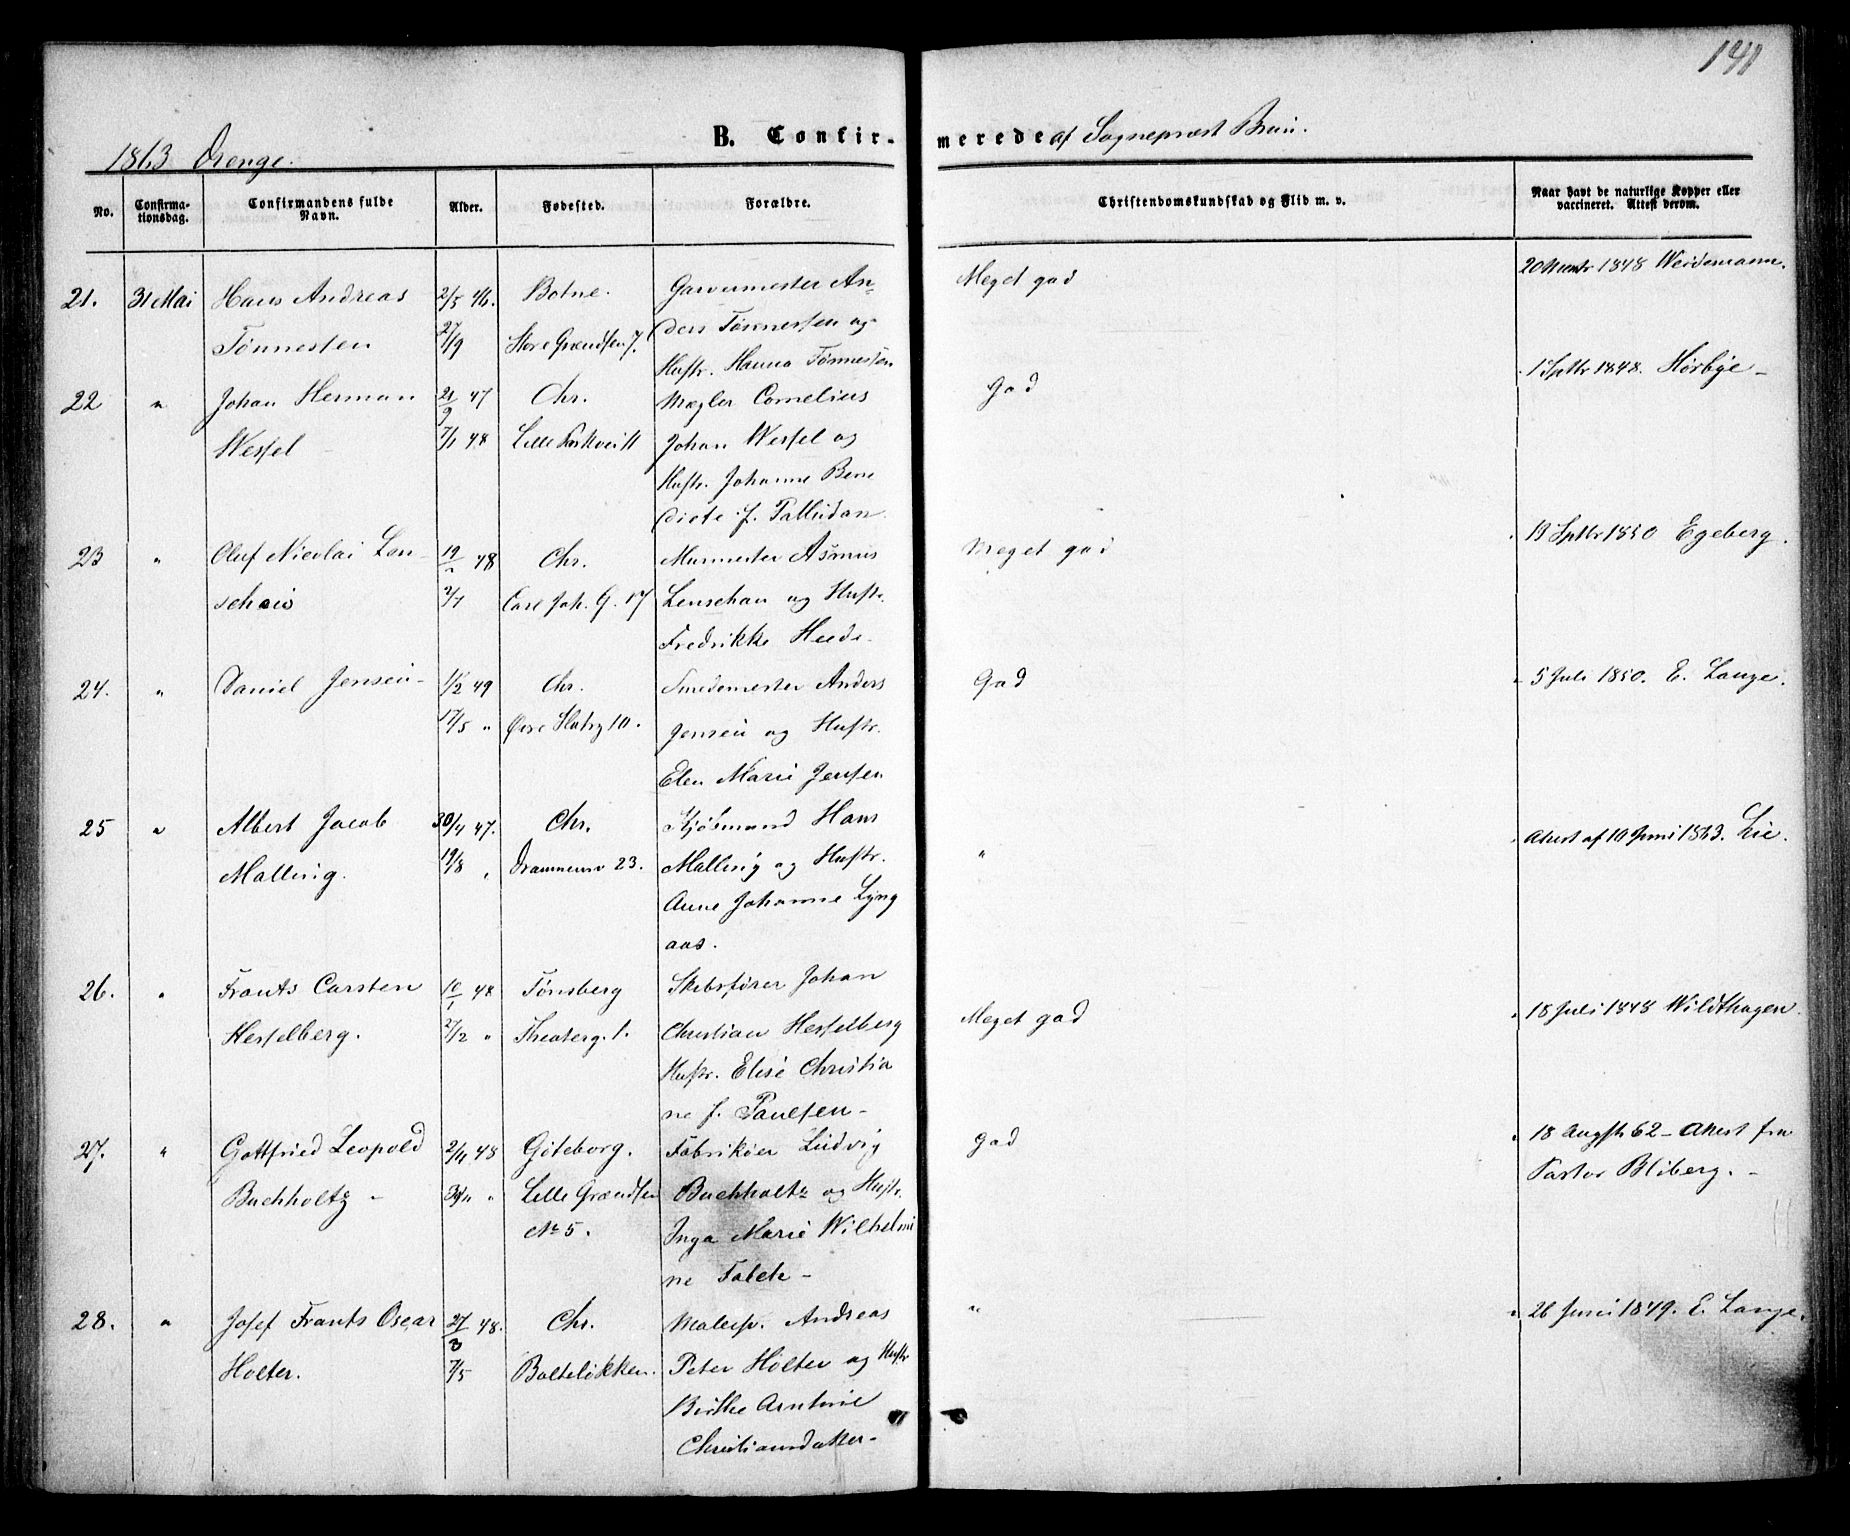 141
1863 Drenge.
B. Confirmerede af Sognepræst Brun.
No.
Confirmationsdag.
Confirmandens fulde Navn.
Alder.
Fødested.
Forældre.
Christendomskundskab og Flid m. v.
Naar havt de naturlige Kopper eller vaccineret. Attest derom.
21. 31 Mai Hans Andreas 2/5 46. Botne. Garvermester An- Meget god 20 1848 Weidemann.
Tönnesten 27/9 Store Grændsen 7. ders Tönnessen og
Hustr. Hanna Tönnessen
22 " Johan Herman 21/9 47 Chr. Mægler Cornelius God 1 Septbr 1848. Hörbye -
Wessel 7/1 48 Lille Johan Wessel og
Hustr. Johanne Bene
dicte f. Palludan
23 " Oluf Nicolai Len- 19/2 48 Chr. Murmester Asmus Meget god 13 Septbr 1850 Egeberg.
schow 2/7 Carl Joh. G. 17 Lenschau og Hustr.
Fredrikke
24. " Daniel Jensen - 11/2 49 Chr. Smedemester Anders God 5 Juli 1850. E. Lange.
17/5 " Øvre Slotsg 10. Jensen og Hustr.
Elen Marie Jensen
25 " Albert Jacob 30/4 47. Chr. Kjøbmand Hans " Attest af 10 Juni 1863. Lie.
Malling. 19/8 " Drammensv 23. Malling og Hustr.
Anne Johanne Lyng
aas.
26. " Frants Carsten 10/1 48 Tönsberg Skibsfører Johan Meget god 18 Juli 1848 Wildthagen.
Hesselberg. 27/2 " Theaterg. 1. Christian Hesselberg
Hustr. Elise Christia
ne f. Paulsen -
27. " Gottfried Leopold 2/4 48 Göteborg. Fabrikør Ludvig God 18 Augst 62 - Attest fra
Buchholtz - " Lille Grændsen Buchholtz og Hustr. Pastor Bliberg. -
No 5. Inga Marie Wilhelmi
ne Falck -
28. " Josef Frants Oscar 27/3 48. Chr. Malersv. Andreas " 26 Juni 1849. E. Lange.
Holter. 7/5 Bolteløkken. Peter Holter og Hustr
Birthe Arntine
Christiansdatter -